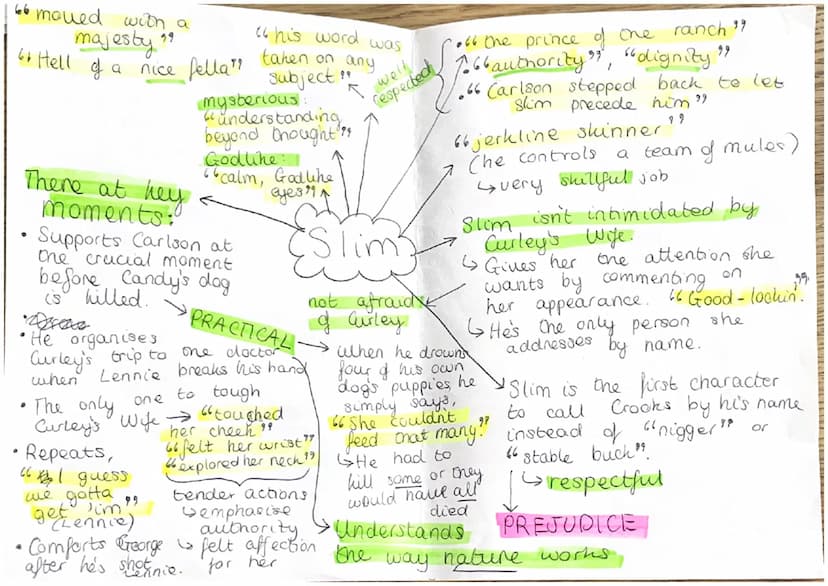 "moved with a
majesty"
"Hell of a nice fella"
"his word was
taken on any
subject"
well
respected
• "the prince of the ranch"
• "authority", "dignity"
• "Carlson stepped back to let
slim precede him"
mysterious:
"understanding
beyond thought"
Godlike:
"calm, Godlike
eyes"
"jerkline skinner"
(he controls a team of mules)
↳ very skillful job
Slim
There at key
moments:
• Supports Carlson at
the crucial moment
before Candy's dog
is killed.
PRACTICAL
• He organises
Curley's trip to the doctor
when Lennie breaks his hand
• The only one to tough
Curley's Wife → "touched
her cheek"
"felt her wrist"
"explored her neck"
tender actions
↳ emphasise
authority
↳ felt affection
for her
• Repeats,
"I guess
we gotta
get 'im"
(Lennie)
• Comforts George
after he's shot
Lennie.
not afraid
of Curley
When he drowns
four of his own
dog's puppies, he
simply says,
"She couldn't
feed that many."
↳ He had to
kill some or they
would have all
died
Understands
the way nature works
Slim isn't intimidated by
Curley's Wife.
↳ Gives her the attention she
wants by commenting on
her appearance. "Good-lookin'."
↳ He's the only person she
addresses by name.
Slim is the first character
to call Crooks by his name
instead of "nigger" or
"stable buck".
↳ respectful
PREJUDICE